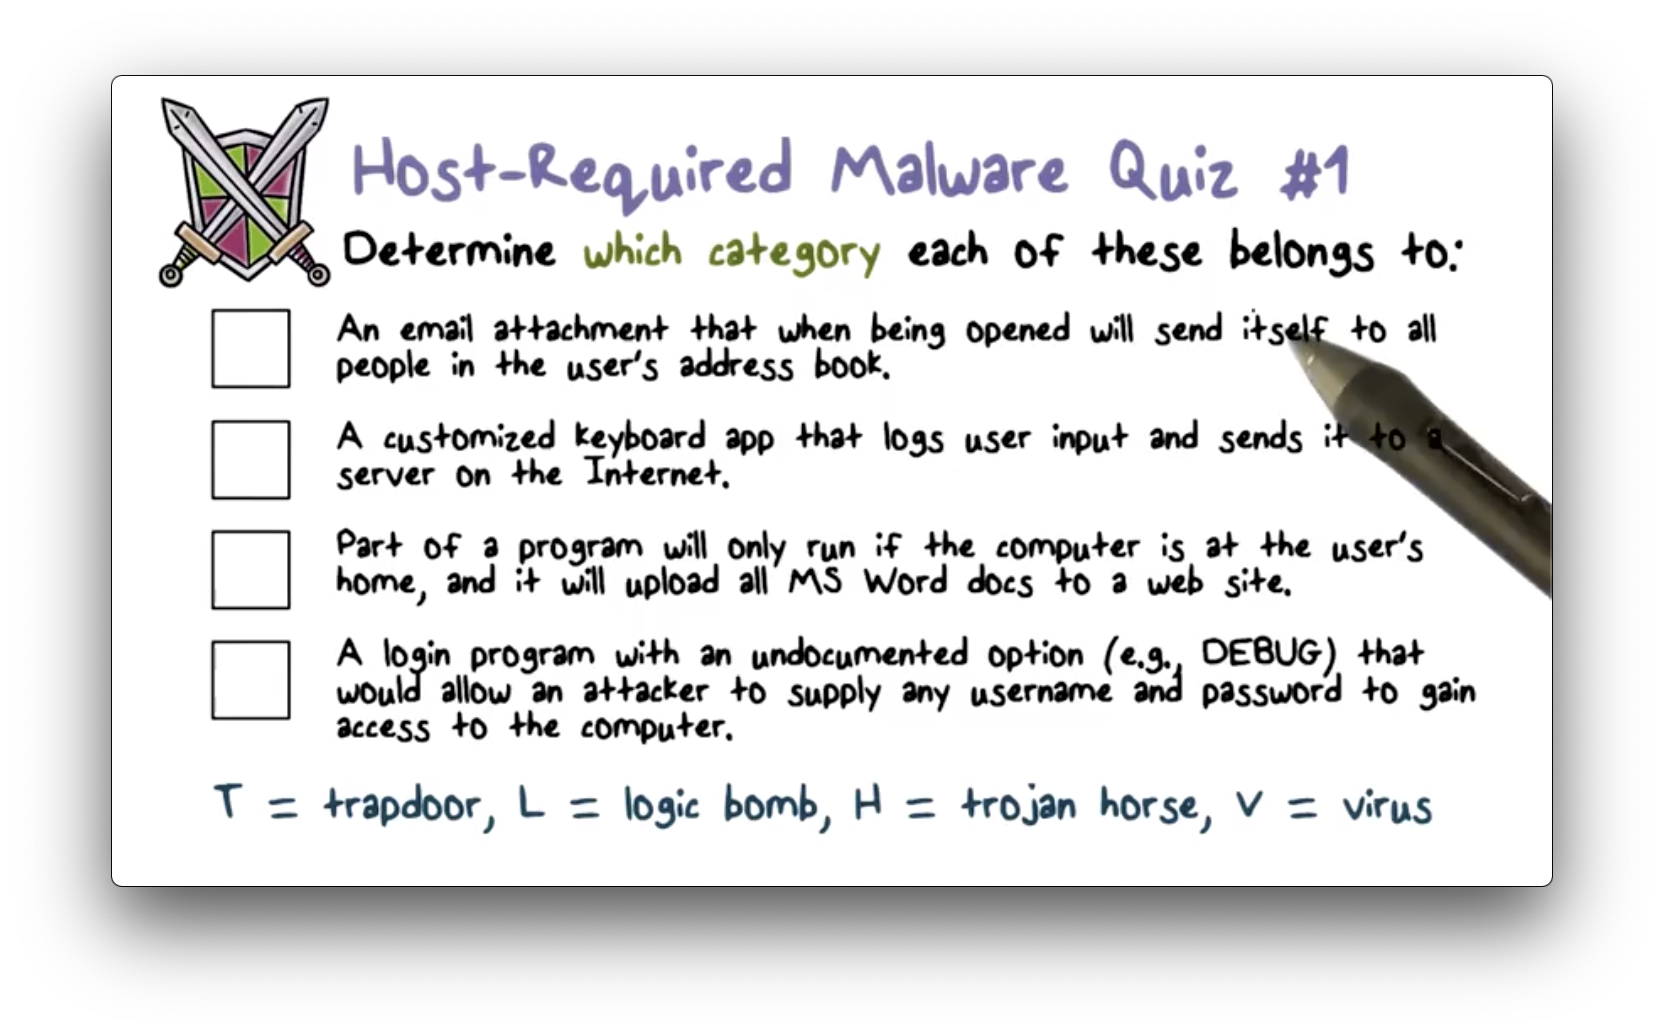 Host-Required Malware Quiz #1
Determine which category each of these belongs to:
An email attachment that when being opened will send itself to all
people in the user's address book.
A customized keyboard app that logs user input and sends it to a
server on the Internet.
Part of a program will only run if the computer is at the user's
home, and it will upload all MS Word docs to a web site.
A login program with an undocumented option (e.g., DEBUG) that
would allow an attacker to supply any username and password to gain
access to the computer.
T = trapdoor, L = logic bomb, H = trojan horse, V = virus